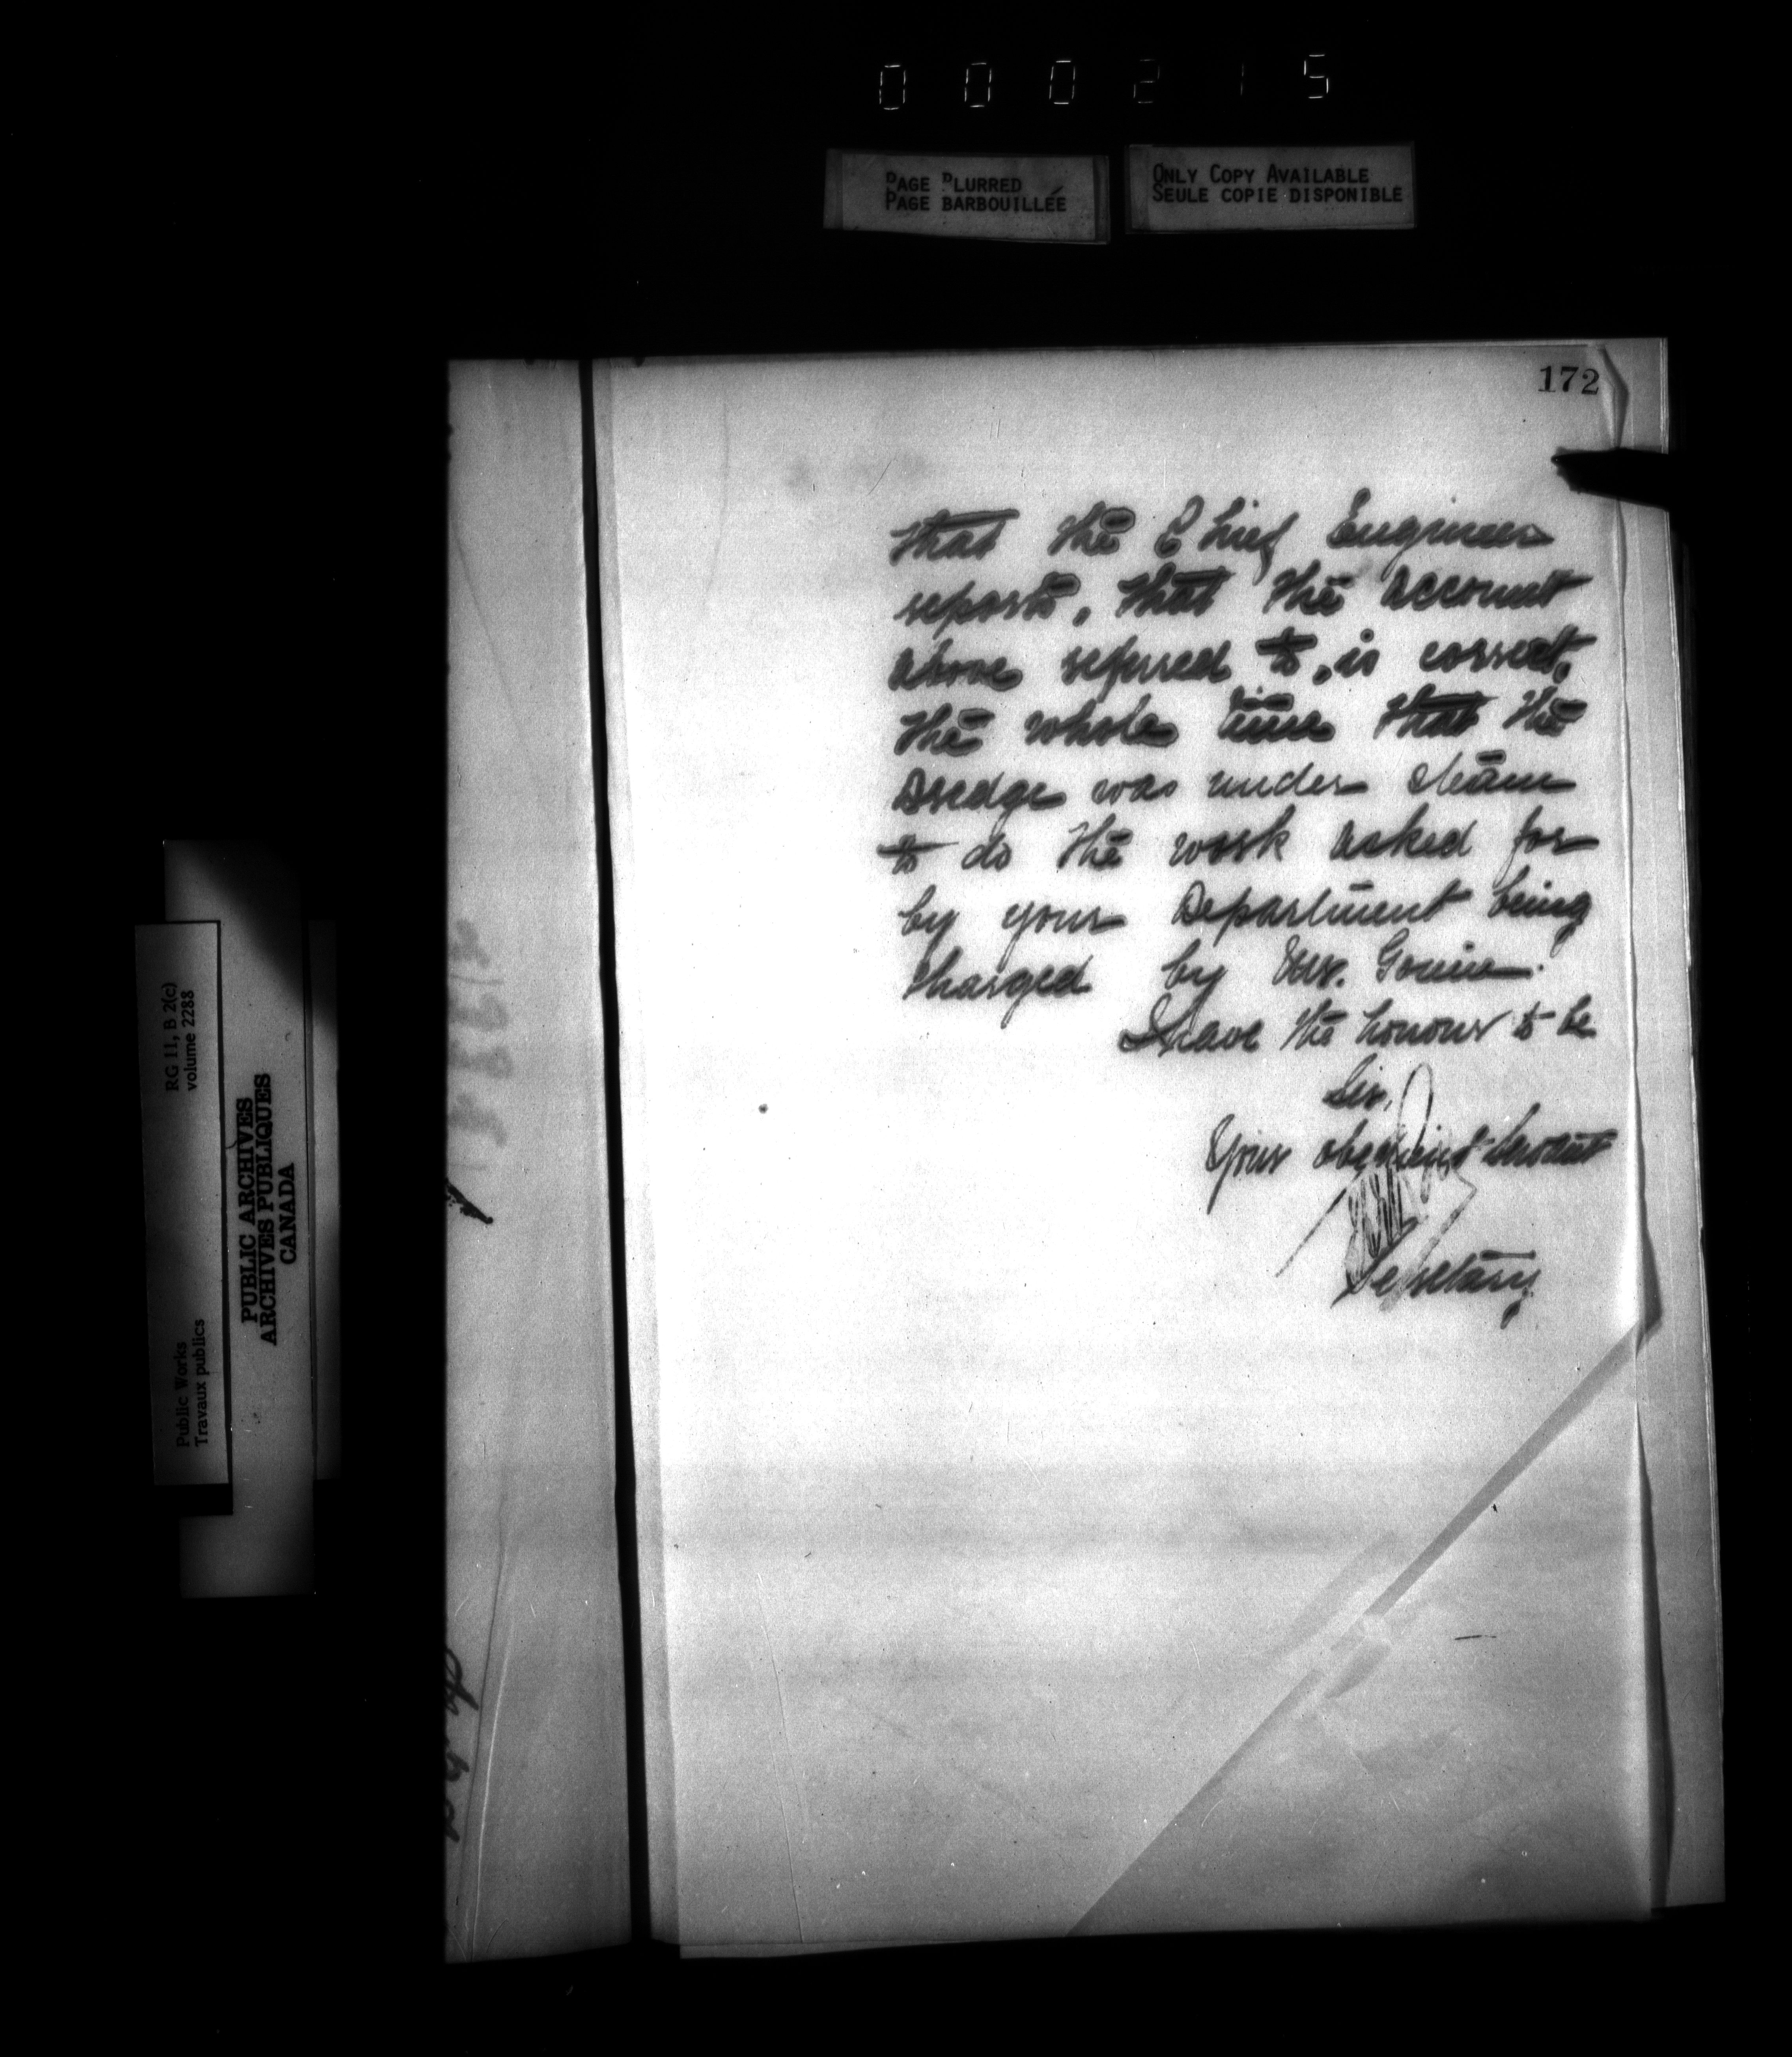 000215
PAGE BLURRED
PAGE BARBOUILLÉE
ONLY COPY AVAILABLE
SEULE COPIE DISPONIBLE
172
that the Chief Engineer
reports, that the account
above referred to, is correct,
the whole time that the
Dredge was under steam
to do the work asked for
by your Department being
charged by Mr. Gouin.
I have the honour to be
Sir,
Your obedient Servant
Secretary
RG 11, B 2(c)
volume 2288
Public Works
Travaux publics
PUBLIC ARCHIVES
ARCHIVES PUBLIQUES
CANADA